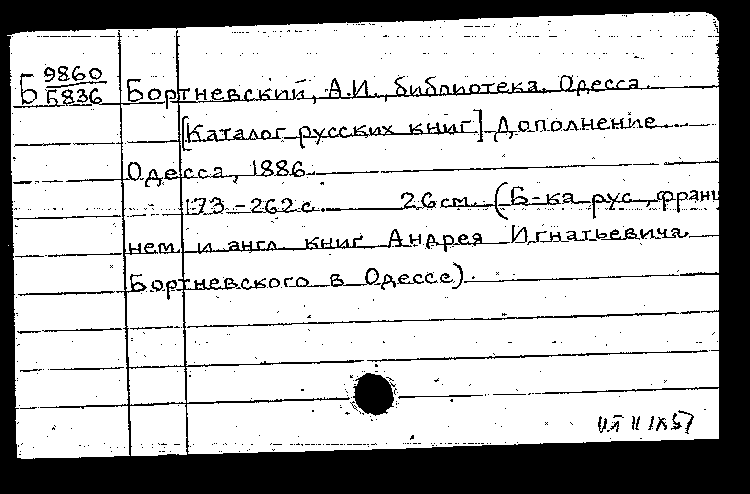 Б 9860 Бортневский, А.И., библиотека. Одесса.
Б836
[Каталог русских книг] Дополнение...
Одесса, 1886.
173-262с. 26см. (Б-ка рус., франц
нем. и англ. книг Андрея Игнатьевича
Бортневского в Одессе).